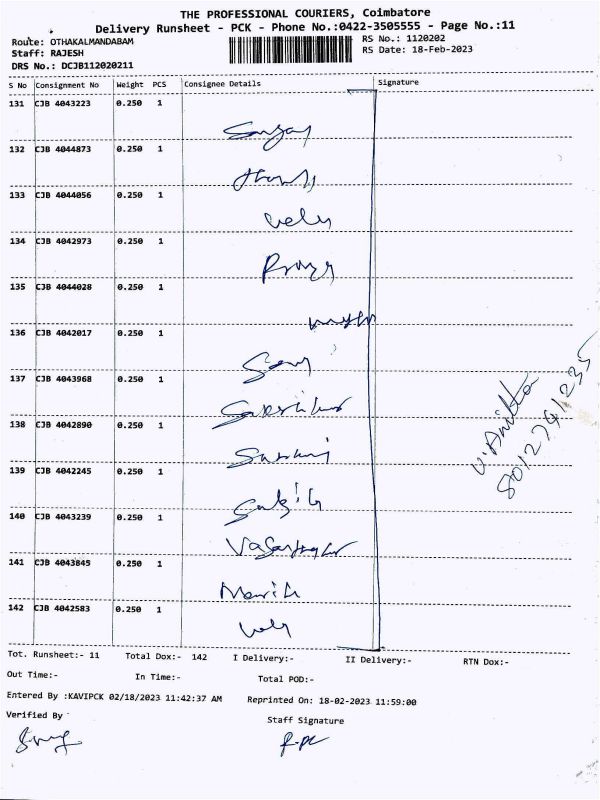 THE PROFESSIONAL COURIERS, Coimbatore
Delivery Runsheet - PCK - Phone No.:0422-3505555 - Page No.:11
Route: OTHAKALMANDABAM
RS No.: 1120202
Staff: RAJESH
RS Date: 18-Feb-2023
DRS No.: DCJB112020211
S No Consignment No Weight PCS Consignee Details Signature
131 CJB 4043223 0.250 1
132 CJB 4044873 0.250 1
133 CJB 4044056 0.250 1
velu
134 CJB 4042973 0.250 1
135 CJB 4044028 0.250 1
136 CJB 4042017 0.250 1
137 CJB 4043968 0.250 1
138 CJB 4042890 0.250 1
139 CJB 4042245 0.250 1
140 CJB 4043239 0.250 1
141 CJB 4043845 0.250 1
142 CJB 4042583 0.250 1
V. Anitha
8012741235
Tot. Runsheet:- 11 Total Dox:- 142 I Delivery:- II Delivery:- RTN Dox:-
Out Time:- In Time:- Total POD:-
Entered By :KAVIPCK 02/18/2023 11:42:37 AM Reprinted On: 18-02-2023 11:59:00
Verified By Staff Signature